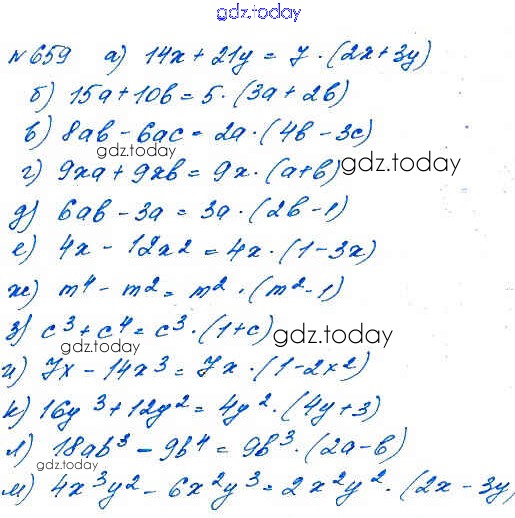 gdz.today
№659 а) 14x + 21y = 7 · (2x + 3y)
б) 15a + 10b = 5 · (3a + 2b)
в) 8ab - 6ac = 2a · (4b - 3c)
gdz.today
г) 9xa + 9xb = 9x · (a + b) gdz.today
д) 6ab - 3a = 3a · (2b - 1)
е) 4x - 12x² = 4x · (1 - 3x)
ж) m⁴ - m² = m² · (m² - 1)
з) c³ + c⁴ = c³ · (1 + c) gdz.today
gdz.today
и) 7x - 14x³ = 7x · (1 - 2x²)
к) 16y³ + 12y² = 4y² · (4y + 3)
л) 18ab³ - 9b⁴ = 9b³ · (2a - b)
gdz.today
м) 4x³y² - 6x²y³ = 2x²y² · (2x - 3y)